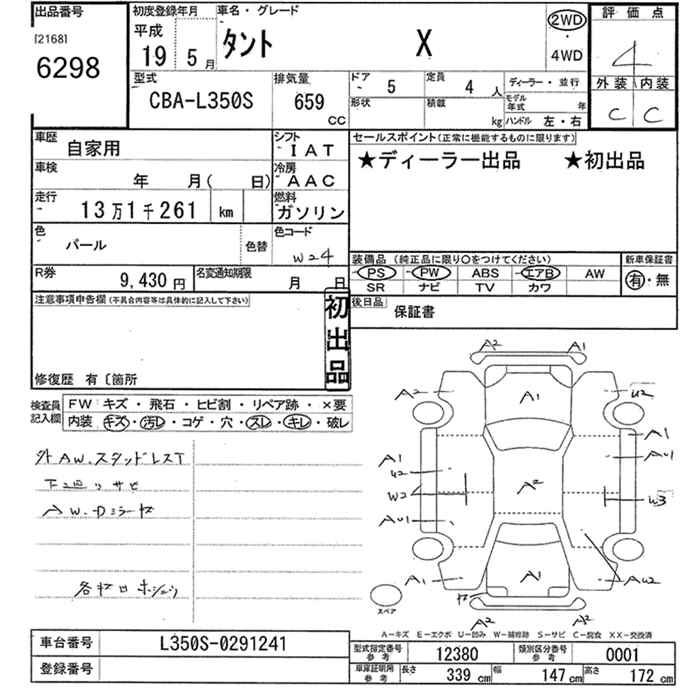 出品番号
[2168]
6298
初度登録年月
平成
19 5月
車名・グレード
タント X
2WD
・
4WD
評価点
4
外装 内装
C C
型式
CBA-L350S
排気量
659
CC
ドア
5
定員
4 人
ディーラー・並行
形状
積載
kg
モデル年式 年
ハンドル 左・右
車歴
自家用
シフト
IAT
車検
年 月( 日)
冷房
AAC
走行
13万1千261 km
燃料
ガソリン
色
パール
色替
色コード
W24
R券
9,430 円
名変通知期限
月 日
セールスポイント(正常に機能するものに限ります)
★ディーラー出品 ★初出品
装備品 (純正品に限り○をつけてください)
PS PW ABS エアB AW
SR ナビ TV カワ
新車保証書
有・無
後日品
保証書
注意事項申告欄(不具合内容等は具体的に記入して下さい)
初出品
修復歴 有〔箇所
検査員
記入欄
FW キズ・飛石・ヒビ割・リペア跡・×要
内装 キズ・汚レ・コゲ・穴・スレ・キレ・破レ
外AW.スタッドレスT
下回リサビ
AW.Dミラーヤセ
A2 A1
A2 A1 U2
A1 A1
U2 AU1
W2 A2 W3
AU1
A1 A1 AU2
A2 A2
スペア
A-キズ E-エクボ U-凹み W-補修跡 S-サビ C-腐食 XX-交換済
車台番号
L350S-0291241
登録番号
型式指定番号
参考
12380
類別区分番号
参考
0001
車庫証明用
参考
長さ 339 cm 幅 147 cm 高さ 172 cm